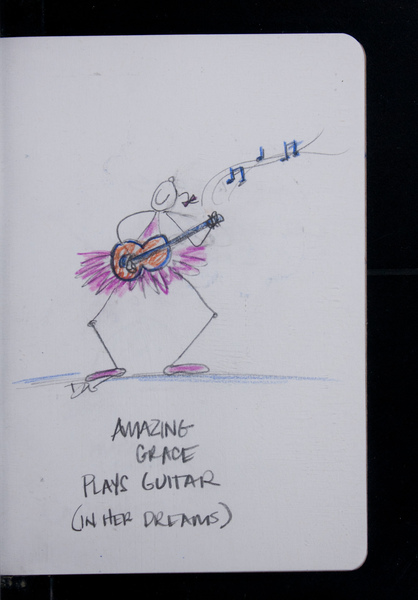 AMAZING
GRACE
PLAYS GUITAR
(IN HER DREAMS)